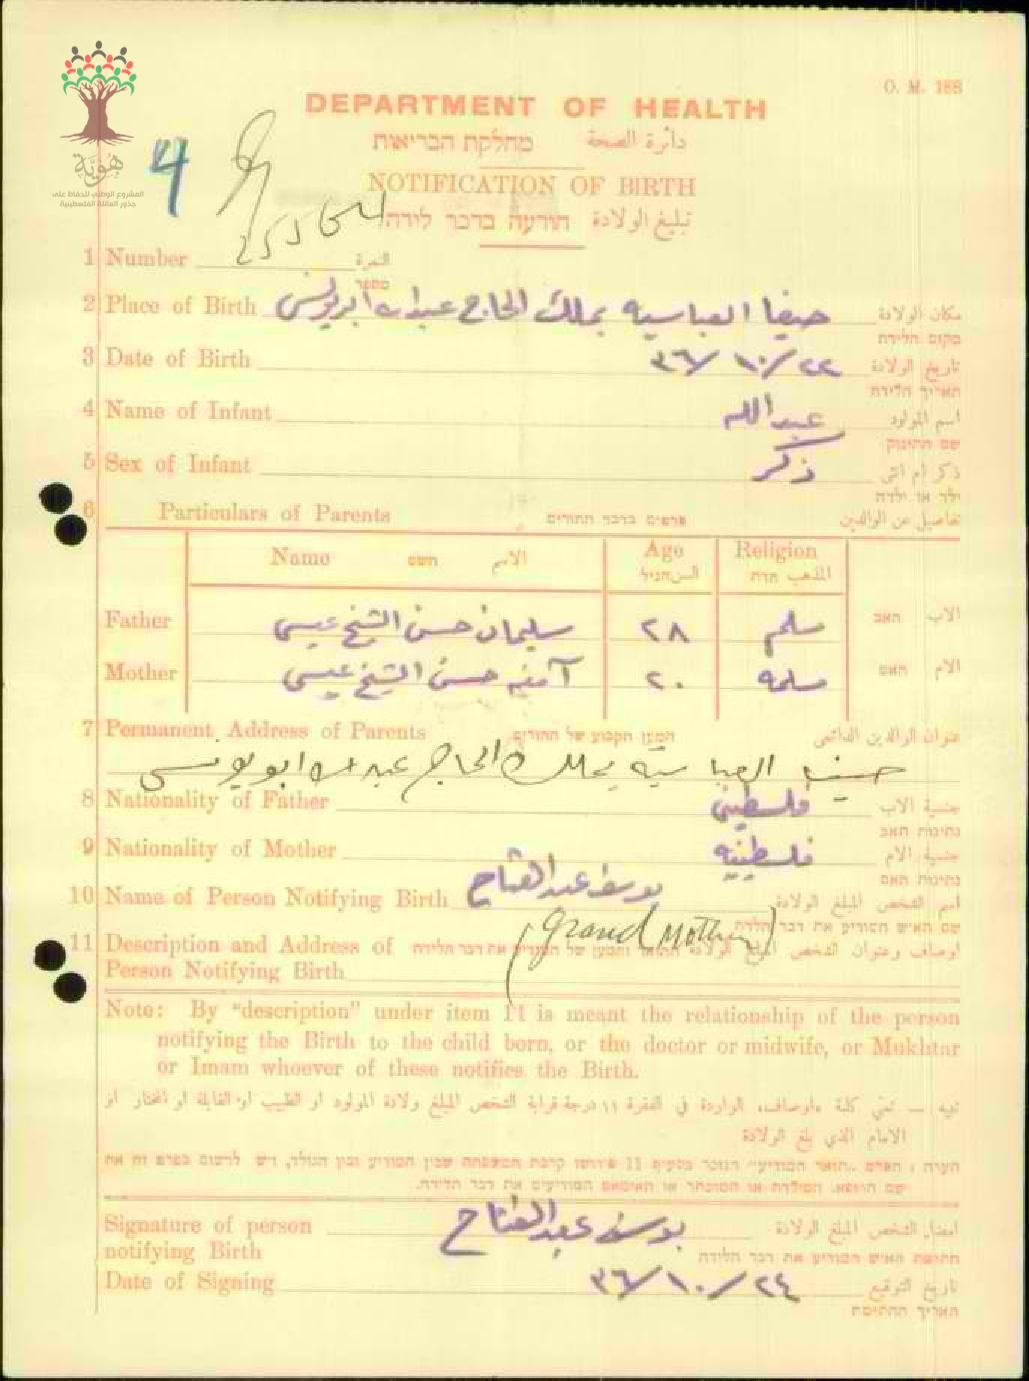 O. M. 188
هوية
المشروع الوطني للحفاظ على
جذور العائلة الفلسطينية
4
DEPARTMENT OF HEALTH
מחלקת הבריאות دائرة الصحة
NOTIFICATION OF BIRTH
הודעה בדבר לידה تبليغ الولادة
1 Number النمرة
מספר
2 Place of Birth حيفا العباسيه بملك الحاج عبدالله ابو يونس مكان الولادة
מקום הלידה
3 Date of Birth ٢٢/١٠/٣٦ تاريخ الولادة
תאריך הלידה
4 Name of Infant عبدالله اسم المولود
שם התינוק
5 Sex of Infant ذكر ذكر ام انثى
ילד או ילדה
6 Particulars of Parents פרטים בדבר ההורים تفاصيل عن الوالدين
Name השם الاسم Age السن הגיל Religion المذهب הדת
Father سليمان حسن الشيخ عيسى ٢٨ مسلم האב الاب
Mother آمنه حسن الشيخ عيسى ٢٠ مسلمه האם الام
7 Permanent Address of Parents המען הקבוע של ההורים عنوان الوالدين الدائمي
حيفا العباسية بملك الحاج عبدالله ابو يونس
8 Nationality of Father فلسطيني جنسية الاب
נתינות האב
9 Nationality of Mother فلسطينيه جنسية الام
נתינות האם
10 Name of Person Notifying Birth يوسف عبدالفتاح اسم الشخص المبلغ الولادة
שם האיש המודיע את דבר הלידה
(Grand Mother)
11 Description and Address of Person Notifying Birth اوصاف وعنوان الشخص المبلغ الولادة התואר והמען של המודיע את דבר הלידה
Note: By "description" under item 11 is meant the relationship of the person
notifying the Birth to the child born, or the doctor or midwife, or Mukhtar
or Imam whoever of these notifies the Birth.
تنبيه — تعني كلمة «اوصاف» الواردة في الفقرة ١١ درجة قرابة الشخص المبلغ ولادة المولود او الطبيب او القابلة او المختار او
الامام الذي بلغ الولادة
הערה: הנזכר בסעיף 11 פירושו קרבת המשפחה שבין המודיע ובין הנולד, ויש לרשום בפרט זה את
שם הרופא, המילדת או המוכתר או האימאם המודיעים את דבר הלידה.
Signature of person notifying Birth يوسف عبدالفتاح امضاء الشخص المبلغ الولادة
חתימת האיש המודיע את דבר הלידה
Date of Signing ٢٤/١٠/٣٦ تاريخ التوقيع
תאריך החתימה